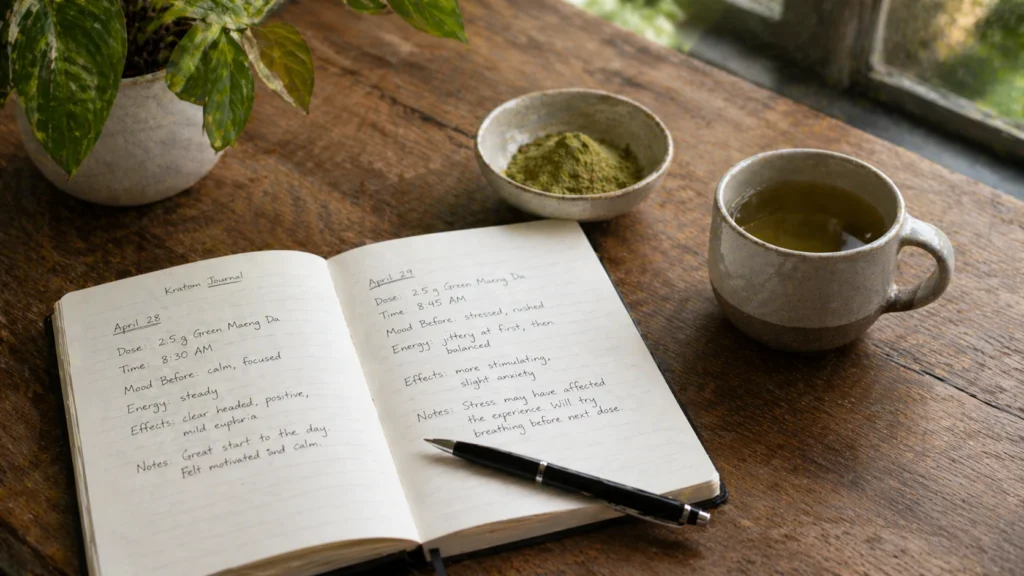 Kratom Journal
April 28
Dose: 2.5 g Green Maeng Da
Time: 8:30 AM
Mood Before: calm, focused
Energy: steady
Effects: clear headed, positive,
mild euphoria
Notes: Great start to the day.
Felt motivated and calm.
April 29
Dose: 2.5 g Green Maeng Da
Time: 8:45 AM
Mood Before: stressed, rushed
Energy: jittery at first, then
balanced
Effects: more stimulating,
slight anxiety
Notes: Stress may have affected
the experience. Will try
breathing before next dose.